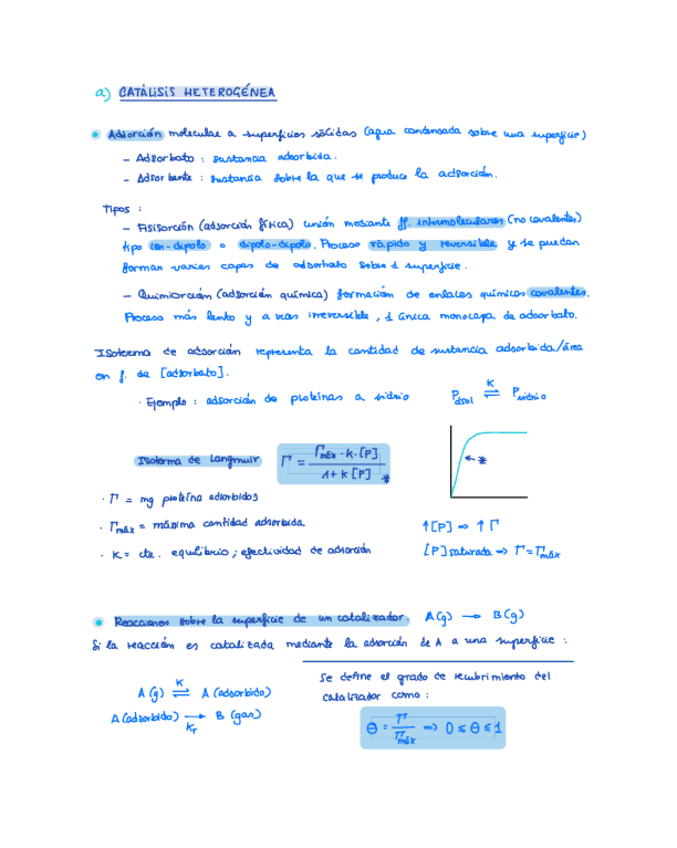 a) CATÁLISIS HETEROGÉNEA
• Adsorción molecular a superficies sólidas (agua condensada sobre una superficie)
– Adsorbato : sustancia adsorbida.
– Adsorbente : sustancia sobre la que se produce la adsorción.
Tipos :
– Fisisorción (adsorción física) unión mediante ff. intermoleculares (no covalentes)
tipo ion-dipolo o dipolo-dipolo. Proceso rápido y reversible y se puedan
formar varias capas de adsorbato sobre 1 superficie.
– Quimiorción (adsorción química) formación de enlaces químicos covalentes.
Proceso más lento y a veces irreversible, 1 única monocapa de adsorbato.
Isoterma de adsorción representa la cantidad de sustancia adsorbida/área
en f. de [adsorbato].
· Ejemplo : adsorción de proteínas a vidrio
P disol ⇌ K P vidrio
Isoterma de Langmuir Γ = Γmáx · K · [P] / 1 + K [P] *
← *
· Γ = mg proteína adsorbidos
· Γmáx = máxima cantidad adsorbida
↑[P] ⇒ ↑ Γ
· K = cte. equilibrio ; efectividad de adsorción
[P] saturada ⇒ Γ = Γmáx
• Reacciones sobre la superficie de un catalizador. A(g) → B(g)
Si la reacción es catalizada mediante la adsorción de A a una superficie :
A (g) ⇌ K A (adsorbido)
A (adsorbido) → Kr B (gas)
Se define el grado de recubrimiento del
catalizador como :
Θ = Γ / Γmáx ⇒ 0 ≤ Θ ≤ 1